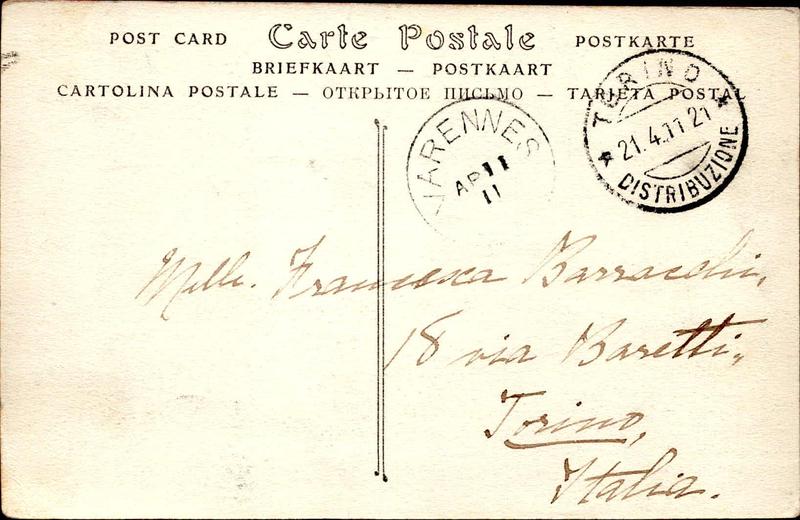 POST CARD Carte Postale POSTKARTE
BRIEFKAART — POSTKAART
CARTOLINA POSTALE — ОТКРЫТОЕ ПИСЬМО — TARJETA POSTAL
VARENNES
AP 11
11
TORINO
21.4.11 21
DISTRIBUZIONE
Melle. Francesca Barracchi,
18 via Baretti,
Torino,
Italia.